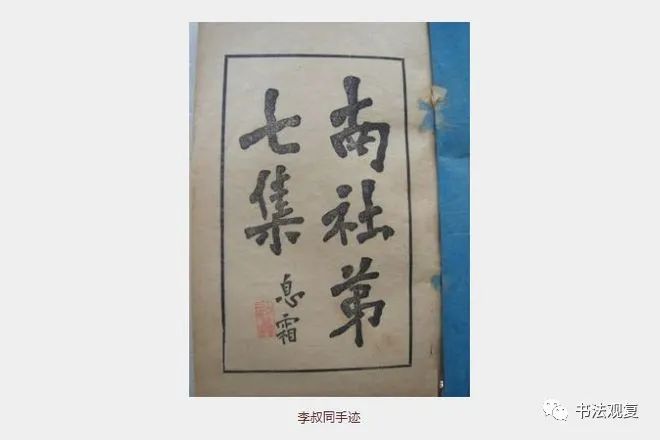 南社第
七集
息霜
李叔同手迹
书法观复